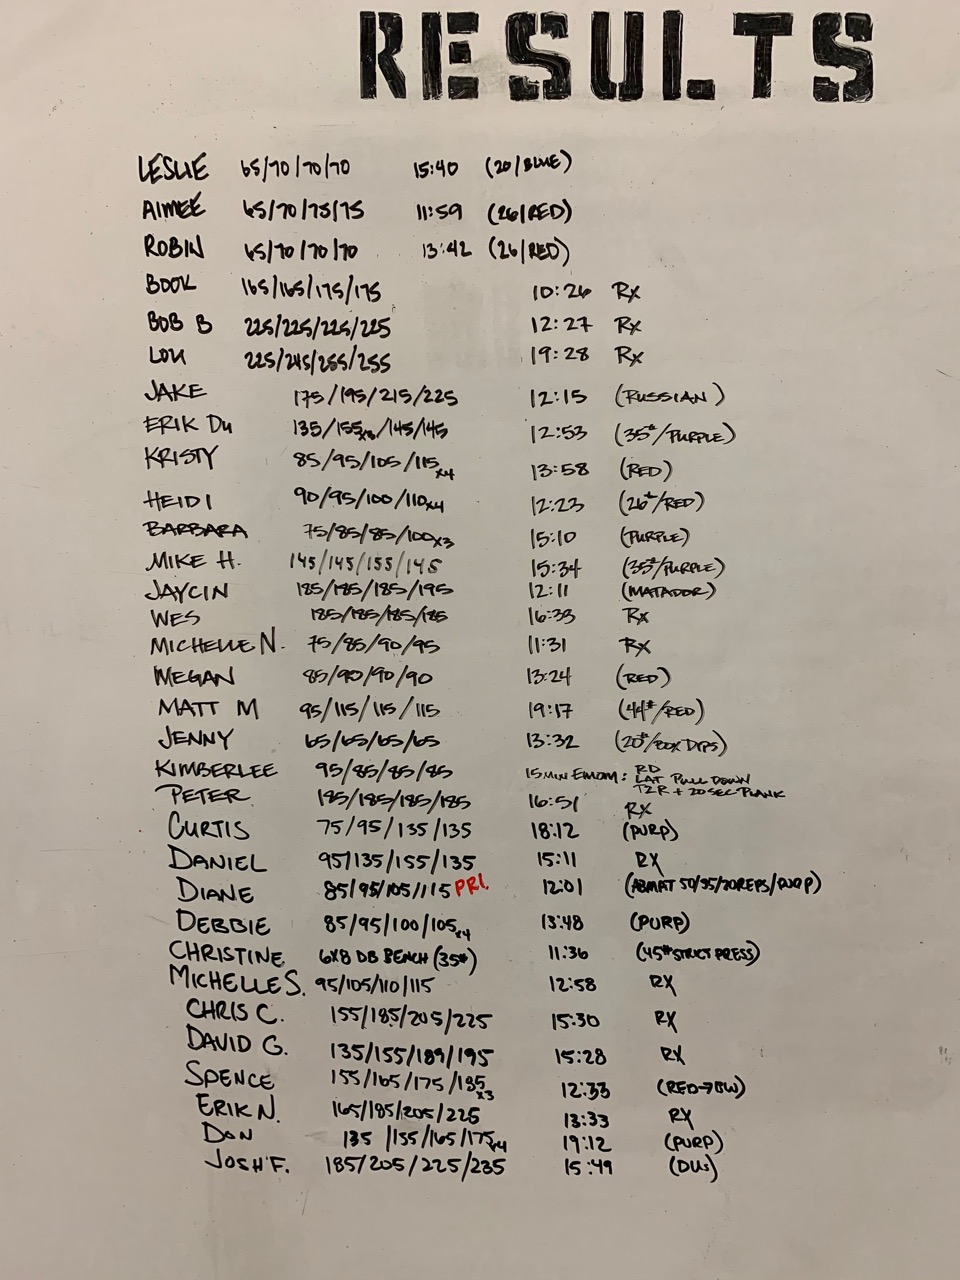 RESULTS
LESLIE 65/70/70/70 15:40 (20/BLUE)
AIMEE 65/70/75/75 11:59 (26/RED)
ROBIN 65/70/70/70 13:42 (26/RED)
BOOK 165/165/175/175 10:26 RX
BOB B 225/225/225/225 12:27 RX
LOU 225/245/255/255 19:28 RX
JAKE 175/195/215/225 12:15 (RUSSIAN)
ERIK DU 135/155x3/145/145 12:53 (35#/PURPLE)
KRISTY 85/95/105/115x4 13:58 (RED)
HEIDI 90/95/100/110x4 12:23 (26#/RED)
BARBARA 75/85/85/100x3 15:10 (PURPLE)
MIKE H. 145/145/155/145 15:34 (35#/PURPLE)
JAYCIN 185/185/185/195 12:11 (MATADOR)
WES 185/185/185/185 16:33 RX
MICHELLE N. 75/85/90/95 11:31 RX
MEGAN 85/90/90/90 13:24 (RED)
MATT M 95/115/115/115 19:17 (44#/RED)
JENNY 65/65/65/65 13:32 (20#/BOX DIPS)
KIMBERLEE 95/85/85/85 15 MIN EMOM: RD
LAT PULL DOWN
T2R + 20 SEC PLANK
PETER 185/185/185/185 16:51 RX
CURTIS 75/95/135/135 18:12 (PURP)
DANIEL 95/135/155/135 15:11 RX
DIANE 85/95/105/115 PR!. 12:01 (ABMAT 50/35/20REPS/PURP)
DEBBIE 85/95/100/105x4 13:48 (PURP)
CHRISTINE 6X8 DB BENCH (35#) 11:36 (45# STRICT PRESS)
MICHELLE S. 95/105/110/115 12:58 RX
CHRIS C. 155/185/205/225 15:30 RX
DAVID G. 135/155/189/195 15:28 RX
SPENCE 155/165/175/185x3 12:33 (RED→BW)
ERIK N. 165/185/205/225 13:33 RX
DON 135/155/165/175x4 19:12 (PURP)
JOSH F. 185/205/225/235 15:49 (DUs)